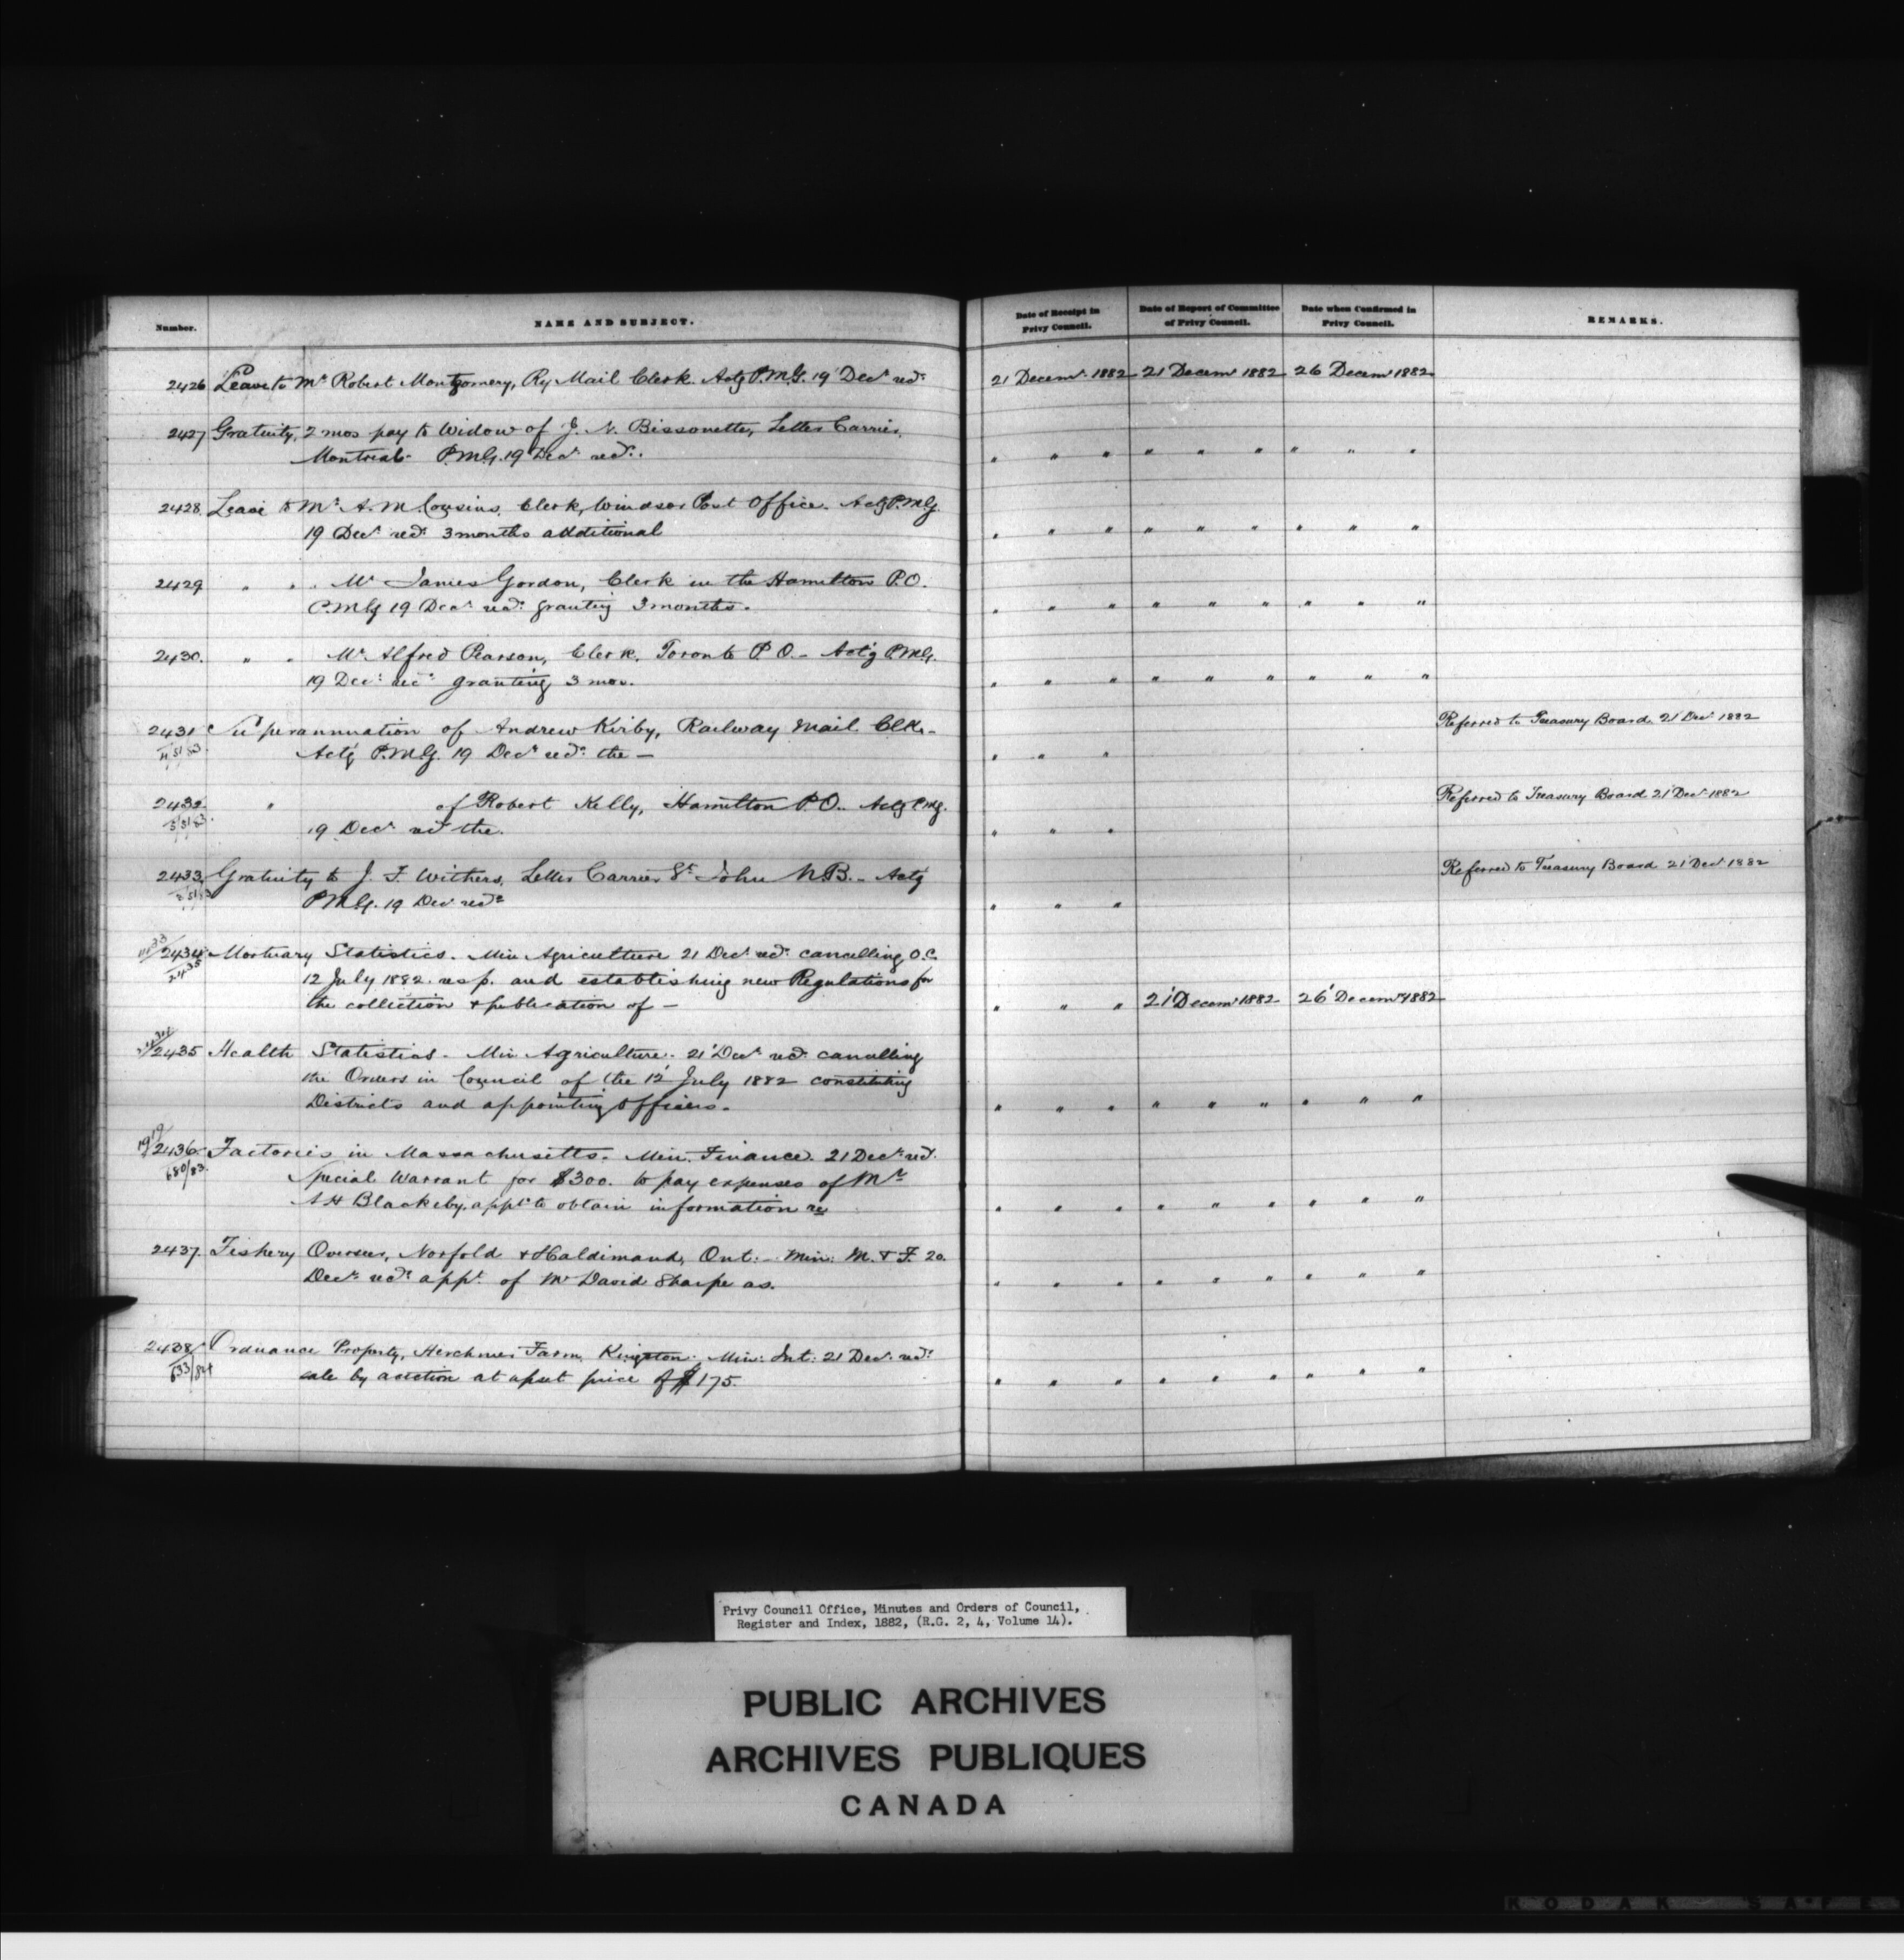 Number.
NAME AND SUBJECT.
Date of Receipt in
Privy Council.
Date of Report of Committee
of Privy Council.
Date when Confirmed in
Privy Council.
REMARKS.
2426 Leave to Mr Robert Montgomery, Ry Mail Clerk. Actg P.M.G. 19 Decr recd: 21 Decemr 1882 21 Decemr 1882 26 Decemr 1882
2427 Gratuity, 2 mos pay to Widow of J. N. Bissonette, Letter Carrier,
Montreal - P.M.G. 19 Decr recd: " " " " " " " " "
2428 Leave to Mr A. M. Cousins, Clerk, Windsor Post Office. Actg P.M.G.
19 Decr recd: 3 months additional " " " " " " " " "
2429 " " Mr James Gordon, Clerk in the Hamilton P.O.
P.M.G 19 Decr recd: granting 3 months. " " " " " " " " "
2430. " " Mr Alfred Pearson, Clerk, Toronto P O. - Act'g P.M.G.
19 Decr: rec: granting 3 mos. " " " " " " " " "
2431 Superannuation of Andrew Kirby, Railway Mail Clk. - Referred to Treasury Board 21 Decr 1882
Act'g P.M.G. 19 Decr recd: the - " " "
2432 " of Robert Kelly, Hamilton P.O.. Actg P.M.G. Referred to Treasury Board 21 Decr 1882
19 Decr recd the. " " "
2433 Gratuity to J. F. Withers, Letter Carrier St John N.B. - Actg Referred to Treasury Board 21 Decr 1882
P.M.G. 19 Decr recd: " " "
2434 Mortuary Statistics. Min Agriculture 21 Decr recd: cancelling O.C.
2435
12 July 1882. resp. and establishing new Regulations for
the collection & publication of - " " " 21 Decemr 1882 26 Decemr 1882
2435 Health Statistics. Min Agriculture. 21 Decr recd: cancelling
the Orders in Council of the 12 July 1882 constituting
Districts and appointing Officers. " " " " " " " " "
2436. Factories in Massachusetts. Min. Finance. 21 Decr recd.
680/83. Special Warrant for $300. to pay expenses of Mr
A H Blackeby, appt to obtain information re " " " " " " " " "
2437. Fishery Overseer, Norfold & Haldimand, Ont: - Min: M. & F. 20.
Decr: recd: appt. of Mr David Sharpe as. " " " " " " " " "
2438 Ordnance Property, Herchmer Farm, Kingston. Min: Int: 21 Decr recd:
633/84 sale by auction at upset price of $175. " " " " " " " " "
Privy Council Office, Minutes and Orders of Council,
Register and Index, 1882, (R.G. 2, 4, Volume 14).
PUBLIC ARCHIVES
ARCHIVES PUBLIQUES
CANADA
KODAK SAFE